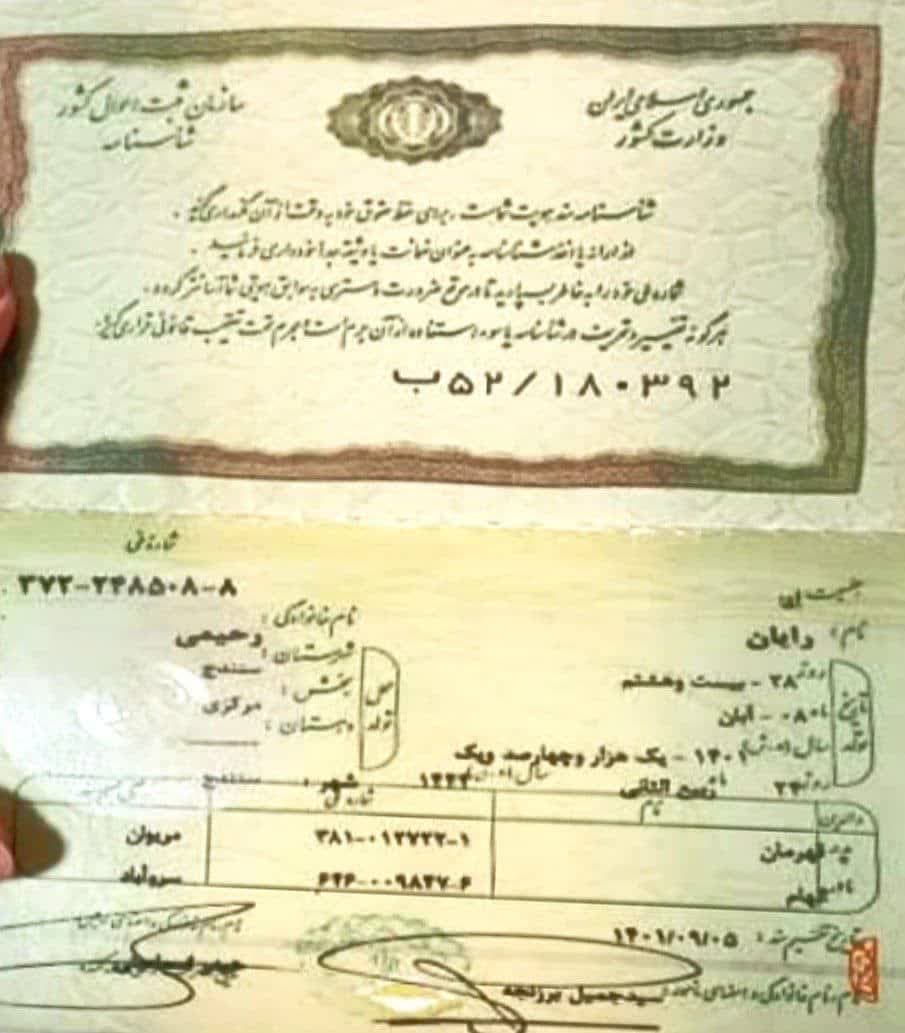 جمهوری اسلامی ایران
وزارت کشور
سازمان ثبت احوال کشور
شناسنامه
شناسنامه سند هویت شماست، برای حفظ حقوق خود به دقت از آن نگهداری کنید.
از ارائه یا اخذ شناسنامه به عنوان ضمانت یا وثیقه جداً خودداری فرمائید.
شماره ملی خود را به خاطر بسپارید تا در مواقع ضرورت دسترسی به سوابق هویتی شما آسانتر گردد.
هرگونه تغییر و تحریف در شناسنامه یا سوء استفاده از آن جرم است و مجرم تحت تعقیب قانونی قرار می‌گیرد.
ب۵۲/۱۸۰۳۹۲
شماره ملی
۳۷۲-۲۴۸۵۰۸-۸
جنسیت
نام: رایان
نام خانوادگی:
رحیمی
تاریخ تولد
روز ۲۸ - بیست وهشتم
ماه ۰۸ - آبان
سال (ه‍.ش) ۱۴۰۱ - یک هزار وچهارصد ویک
محل تولد
شهرستان: سنندج
بخش: مرکزی
دهستان:
شهر: سنندج
روز ۲۴
نام
شماره ملی
والدین
پدر قهرمان
۳۸۱-۰۱۲۷۲۲-۱
مریوان
مادر الهام
سروآباد
تاریخ تنظیم سند: ۱۴۰۱/۰۹/۰۵
نام، نام خانوادگی و امضای مامور: سیدجمیل برزنجه